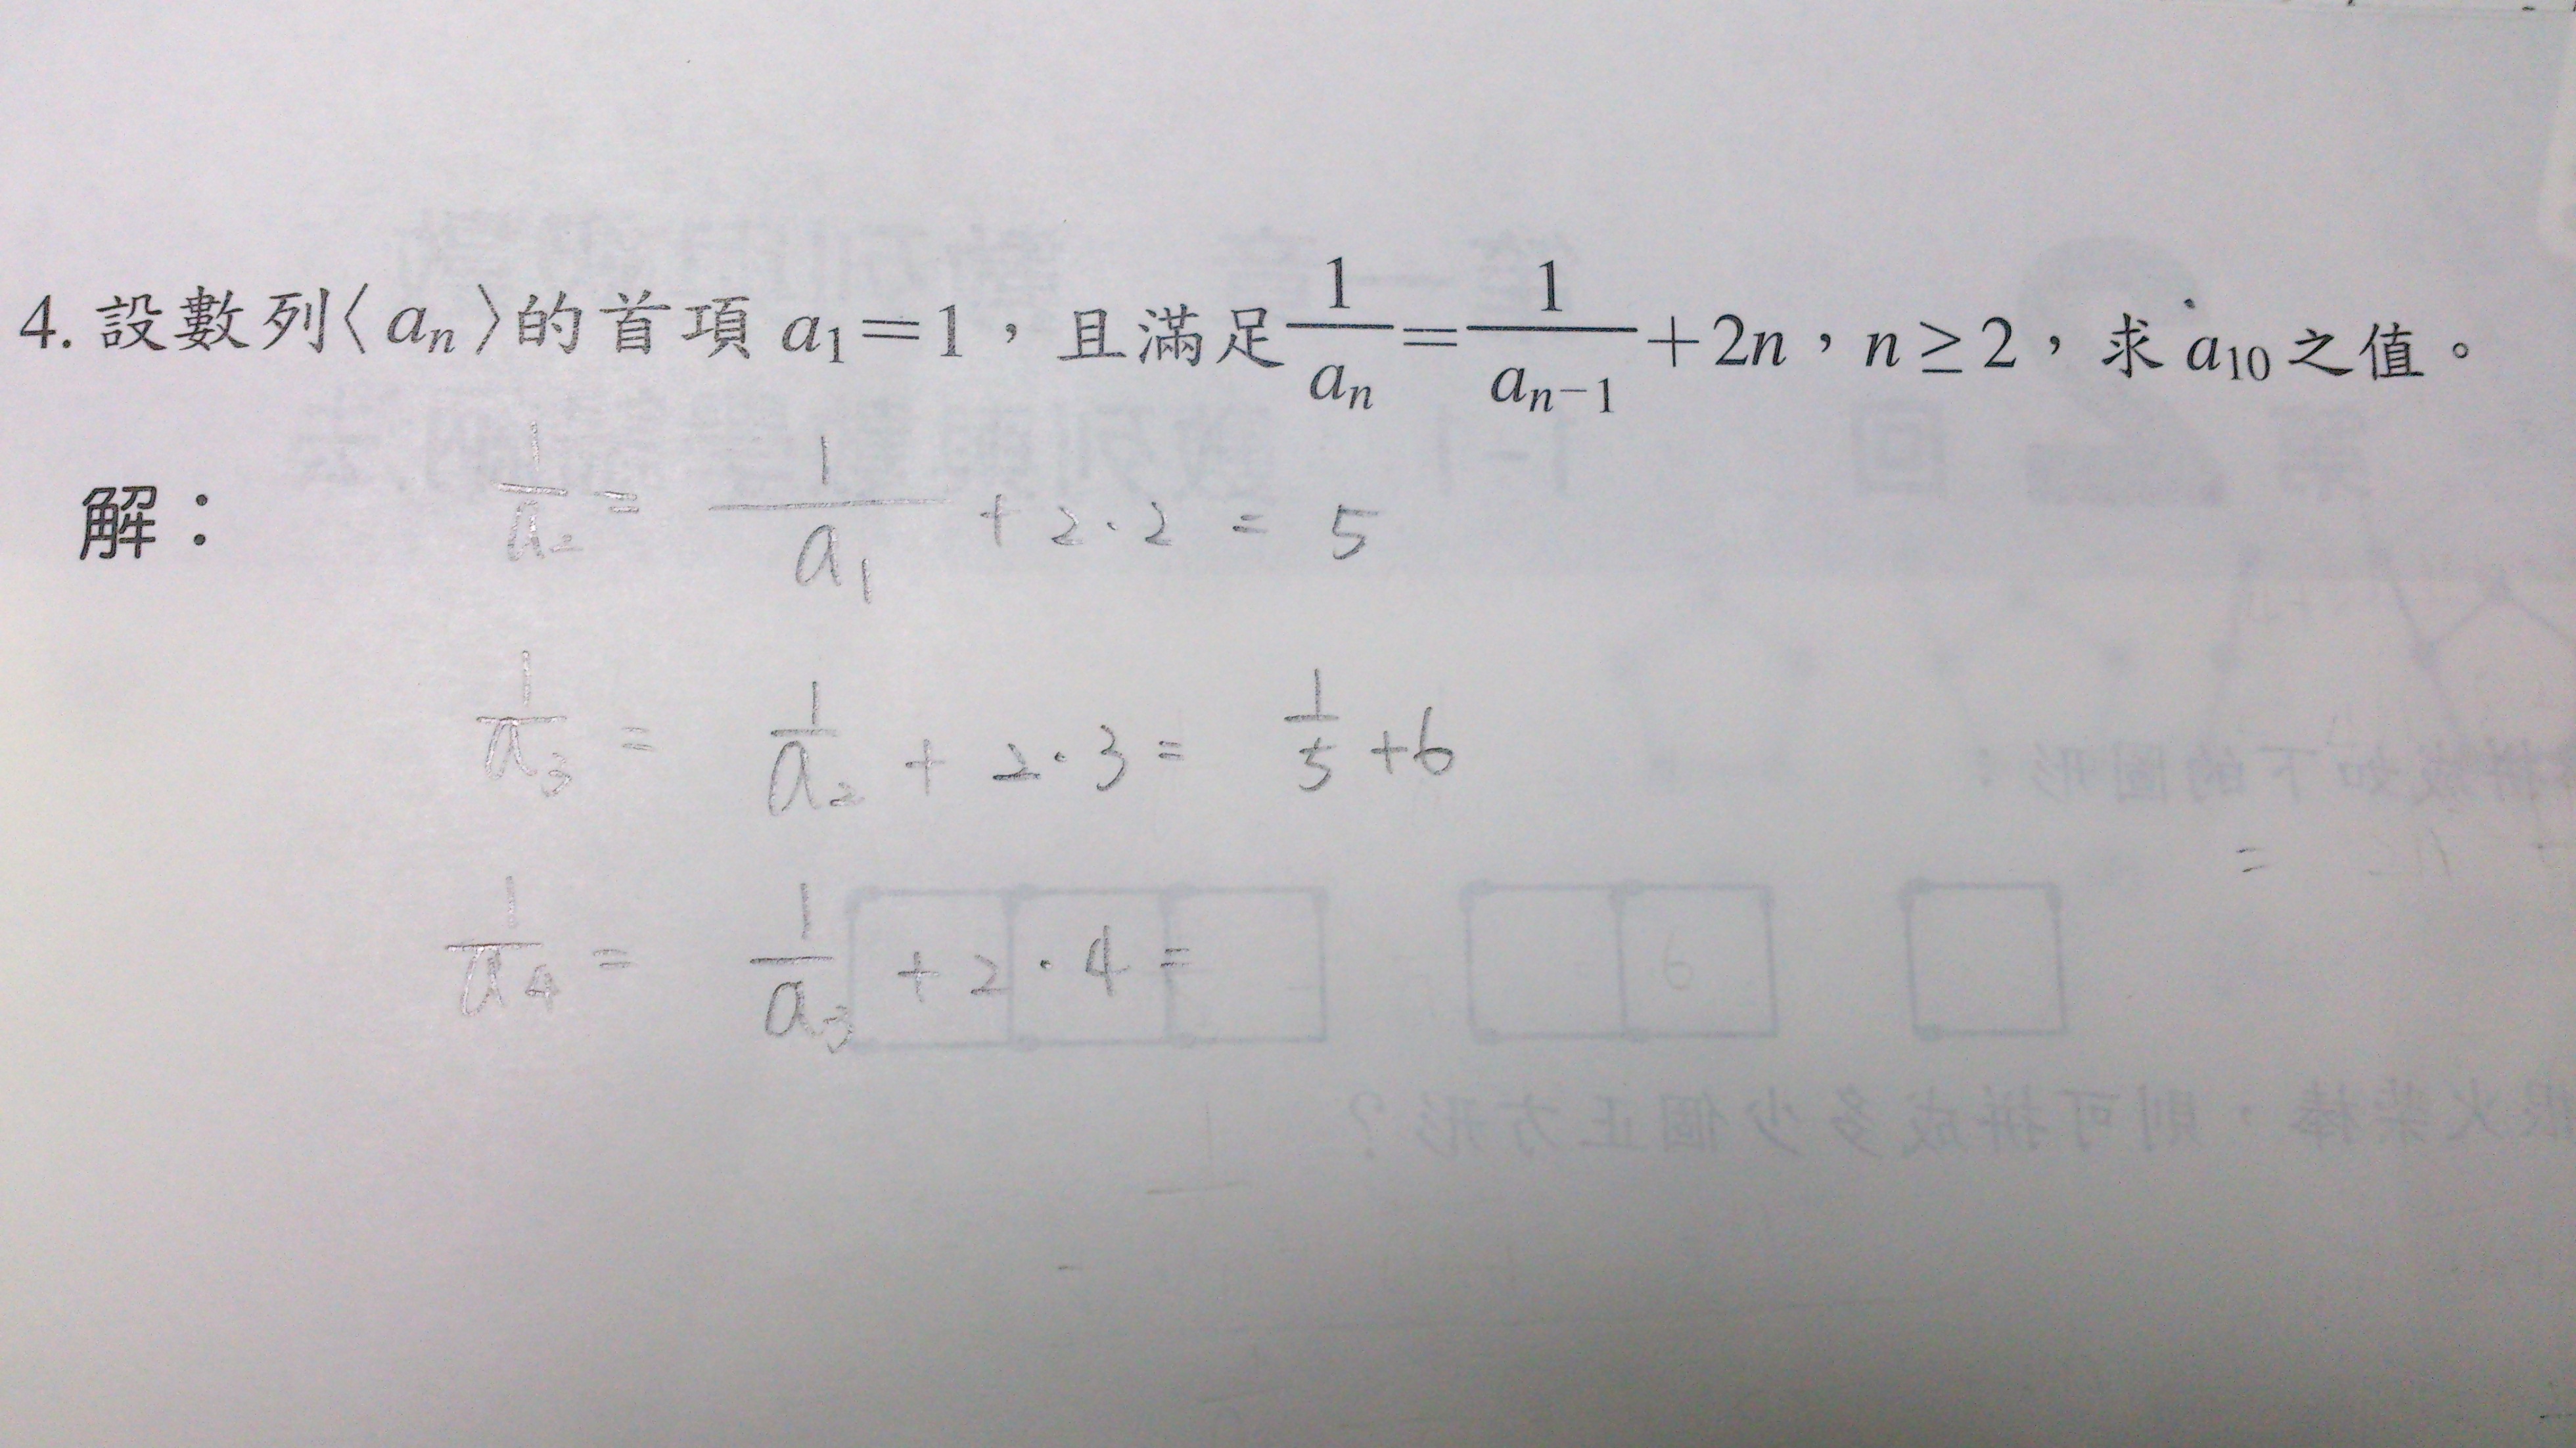 4. 設數列〈aₙ〉的首項 a₁=1，且滿足 1/aₙ = 1/aₙ₋₁ + 2n，n≥2，求 a₁₀ 之值。
解： 1/a₂ = 1/a₁ + 2·2 = 5
1/a₃ = 1/a₂ + 2·3 = 1/5 + 6
1/a₄ = 1/a₃ + 2·4 =